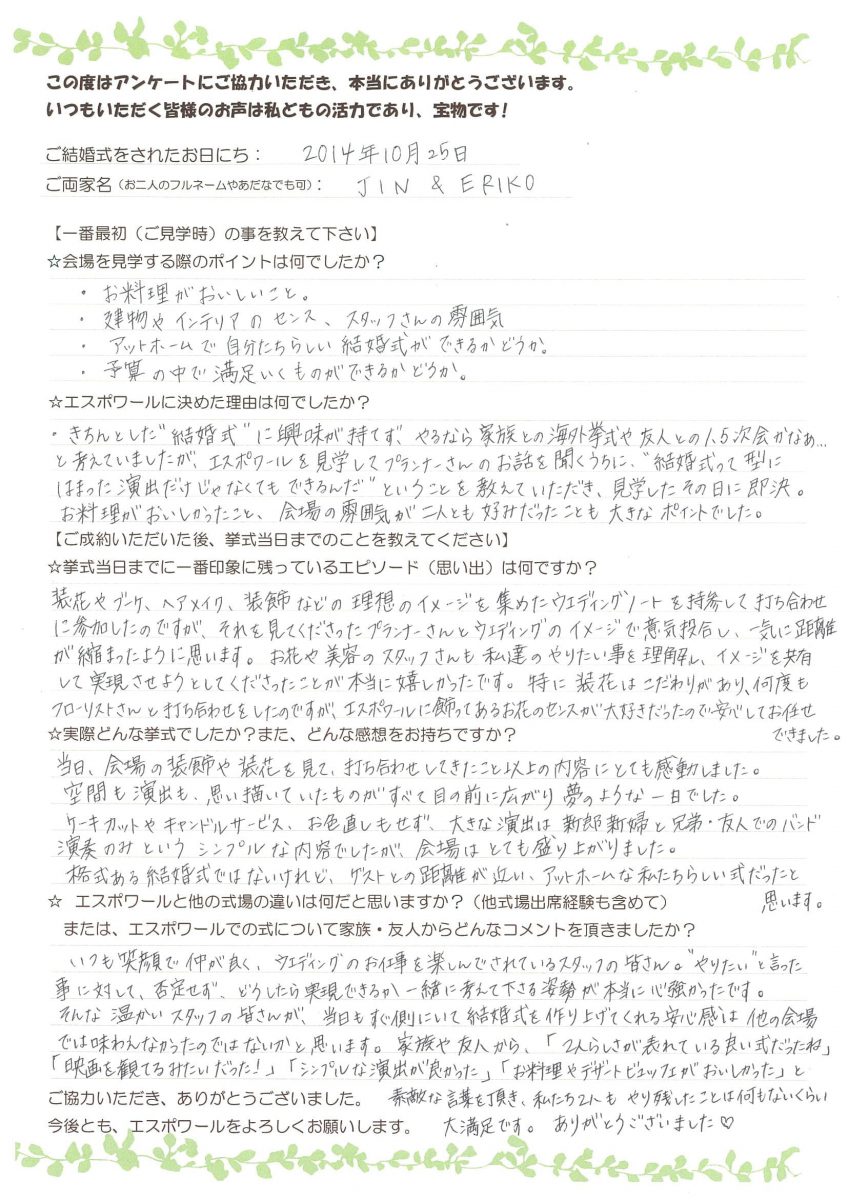 この度はアンケートにご協力いただき、本当にありがとうございます。
いつもいただく皆様のお声は私どもの活力であり、宝物です!
ご結婚式をされたお日にち： 2014年10月25日
ご両家名（お二人のフルネームやあだなでも可）： JIN & ERIKO
【一番最初（ご見学時）の事を教えて下さい】
☆会場を見学する際のポイントは何でしたか？
・ お料理がおいしいこと。
・ 建物やインテリアのセンス、スタッフさんの雰囲気
・ アットホームで自分たちらしい結婚式ができるかどうか。
・ 予算の中で満足いくものができるかどうか。
☆エスポワールに決めた理由は何でしたか？
・きちんとした"結婚式"に興味が持てず、やるなら家族との海外挙式や友人との1.5次会かなぁ…
と考えていましたが、エスポワールを見学してプランナーさんのお話を聞くうちに、"結婚式って型に
はまった演出だけじゃなくてもできるんだ"ということを教えていただき、見学したその日に即決。
お料理がおいしかったこと、会場の雰囲気が二人とも好みだったことも大きなポイントでした。
【ご成約いただいた後、挙式当日までのことを教えてください】
☆挙式当日までに一番印象に残っているエピソード（思い出）は何ですか？
装花やブーケ、ヘアメイク、装飾などの理想のイメージを集めたウエディングノートを持参して打ち合わせ
に参加したのですが、それを見てくださったプランナーさんとウエディングのイメージで意気投合し、一気に距離
が縮まったように思います。お花や美容のスタッフさんも私達のやりたい事を理解し、イメージを共有
して実現させようとしてくださったことが本当に嬉しかったです。特に装花はこだわりがあり、何度も
フローリストさんと打ち合わせをしたのですが、エスポワールに飾ってあるお花のセンスが大好きだったので安心してお任せ
できました。
☆実際どんな挙式でしたか？また、どんな感想をお持ちですか？
当日、会場の装飾や装花を見て、打ち合わせしてきたこと以上の内容にとても感動しました。
空間も演出も、思い描いていたものがすべて目の前に広がり夢のような一日でした。
ケーキカットやキャンドルサービス、お色直しもせず、大きな演出は新郎新婦と兄弟・友人でのバンド
演奏のみというシンプルな内容でしたが、会場はとても盛り上がりました。
格式ある結婚式ではないけれど、ゲストとの距離が近い、アットホームな私たちらしい式だったと
思います。
☆ エスポワールと他の式場の違いは何だと思いますか？（他式場出席経験も含めて）
または、エスポワールでの式について家族・友人からどんなコメントを頂きましたか？
いつも笑顔で仲が良く、ウエディングのお仕事を楽しんでされているスタッフの皆さん。"やりたい"と言った
事に対して、否定せず、どうしたら実現できるか一緒に考えて下さる姿勢が本当に心強かったです。
そんな温かいスタッフの皆さんが、当日もすぐ側にいて結婚式を作り上げてくれる安心感は他の会場
では味わえなかったのではないかと思います。家族や友人から、「2人らしさが表れている良い式だったね」
「映画を観てるみたいだった！」「シンプルな演出が良かった」「お料理やデザートビュッフェがおいしかった」と
ご協力いただき、ありがとうございました。 素敵な言葉を頂き、私たち2人もやり残したことは何もないくらい
今後とも、エスポワールをよろしくお願いします。 大満足です。ありがとうございました♡